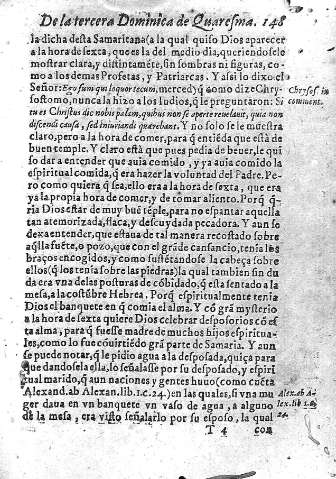 De la tercera Dominica de Quaresma. 148
la dicha desta Samaritana (a la qual quiso Dios aparecer
a la hora de sexta, que es la del medio dia, queriendosele
mostrar clara, y distintamẽte, sin sombras ni figuras, co-
mo a los demas Profetas, y Patriarcas. Y assi lo dixo el
Señor: Ego sum qui loquor tecum, merced q̃ como dize Chry-
sostomo, nunca la hizo a los Iudios, q̃ le preguntaron: Si
tu es Christus dic nobis palam, quibus non se aperte reuelauit, quia non
discendi causa, sed iniuriandi quærebant. Y no solo se le muestra
claro, pero a la hora de comer, para q̃ entiẽda que està de
buen temple. Y claro està que pues pedia de beuer, le qui
so dar a entender que auia comido, y ya auia comido la
espiritual comida, q̃ era hazer la voluntad del Padre. Pe-
ro como quiera q̃ sea, ello era a la hora de sexta, que era
ya la propia hora de comer, y de tomar aliento. Porq̃ q̃-
ria Dios estar de muy buẽ tẽple, para no espantar aquella
tan atemorizada, flaca, y descuydada pecadora. Y aun se
dexa entender, que estaua de tal manera recostado sobre
aq̃lla fuẽte, o pozo, que con el grãde cansancio, tenia los
braços encogidos, y como sustẽtandose la cabeça sobre
ellos (q̃ los tenia sobre las piedras) la qual tambien sin du
da era vna de las posturas de cõbidado, q̃ està sentado a la
mesa, a la costũbre Hebrea. Porq̃ espiritualmente tenia
Dios el banquete en q̃ comia el alma. Y cõ grã mysterio
a la hora de sexta quiere Dios celebrar desposorios cõ es
ta alma, para q̃ fuesse madre de muchos hijos espiritua-
les, como lo fue cõuirtiẽdo grã parte de Samaria. Y aun
se puede notar, q̃ le pidio agua a la desposada, quiça para
que dandosela ella, lo señalasse por su desposado, y espiri
tual marido, q̃ aun naciones y gentes huuo (como cuẽta
Alexand. ab Alexan. lib. 1. c. 24.) en las quales, si vna mu
ger daua en vn banquete vn vaso de agua, a alguno
de la mesa, era visto señalarlo por su esposo, la qual
T 4 con
Chrysos. in
comment.
Alex. ab A-
lex. lib. 1.
24.